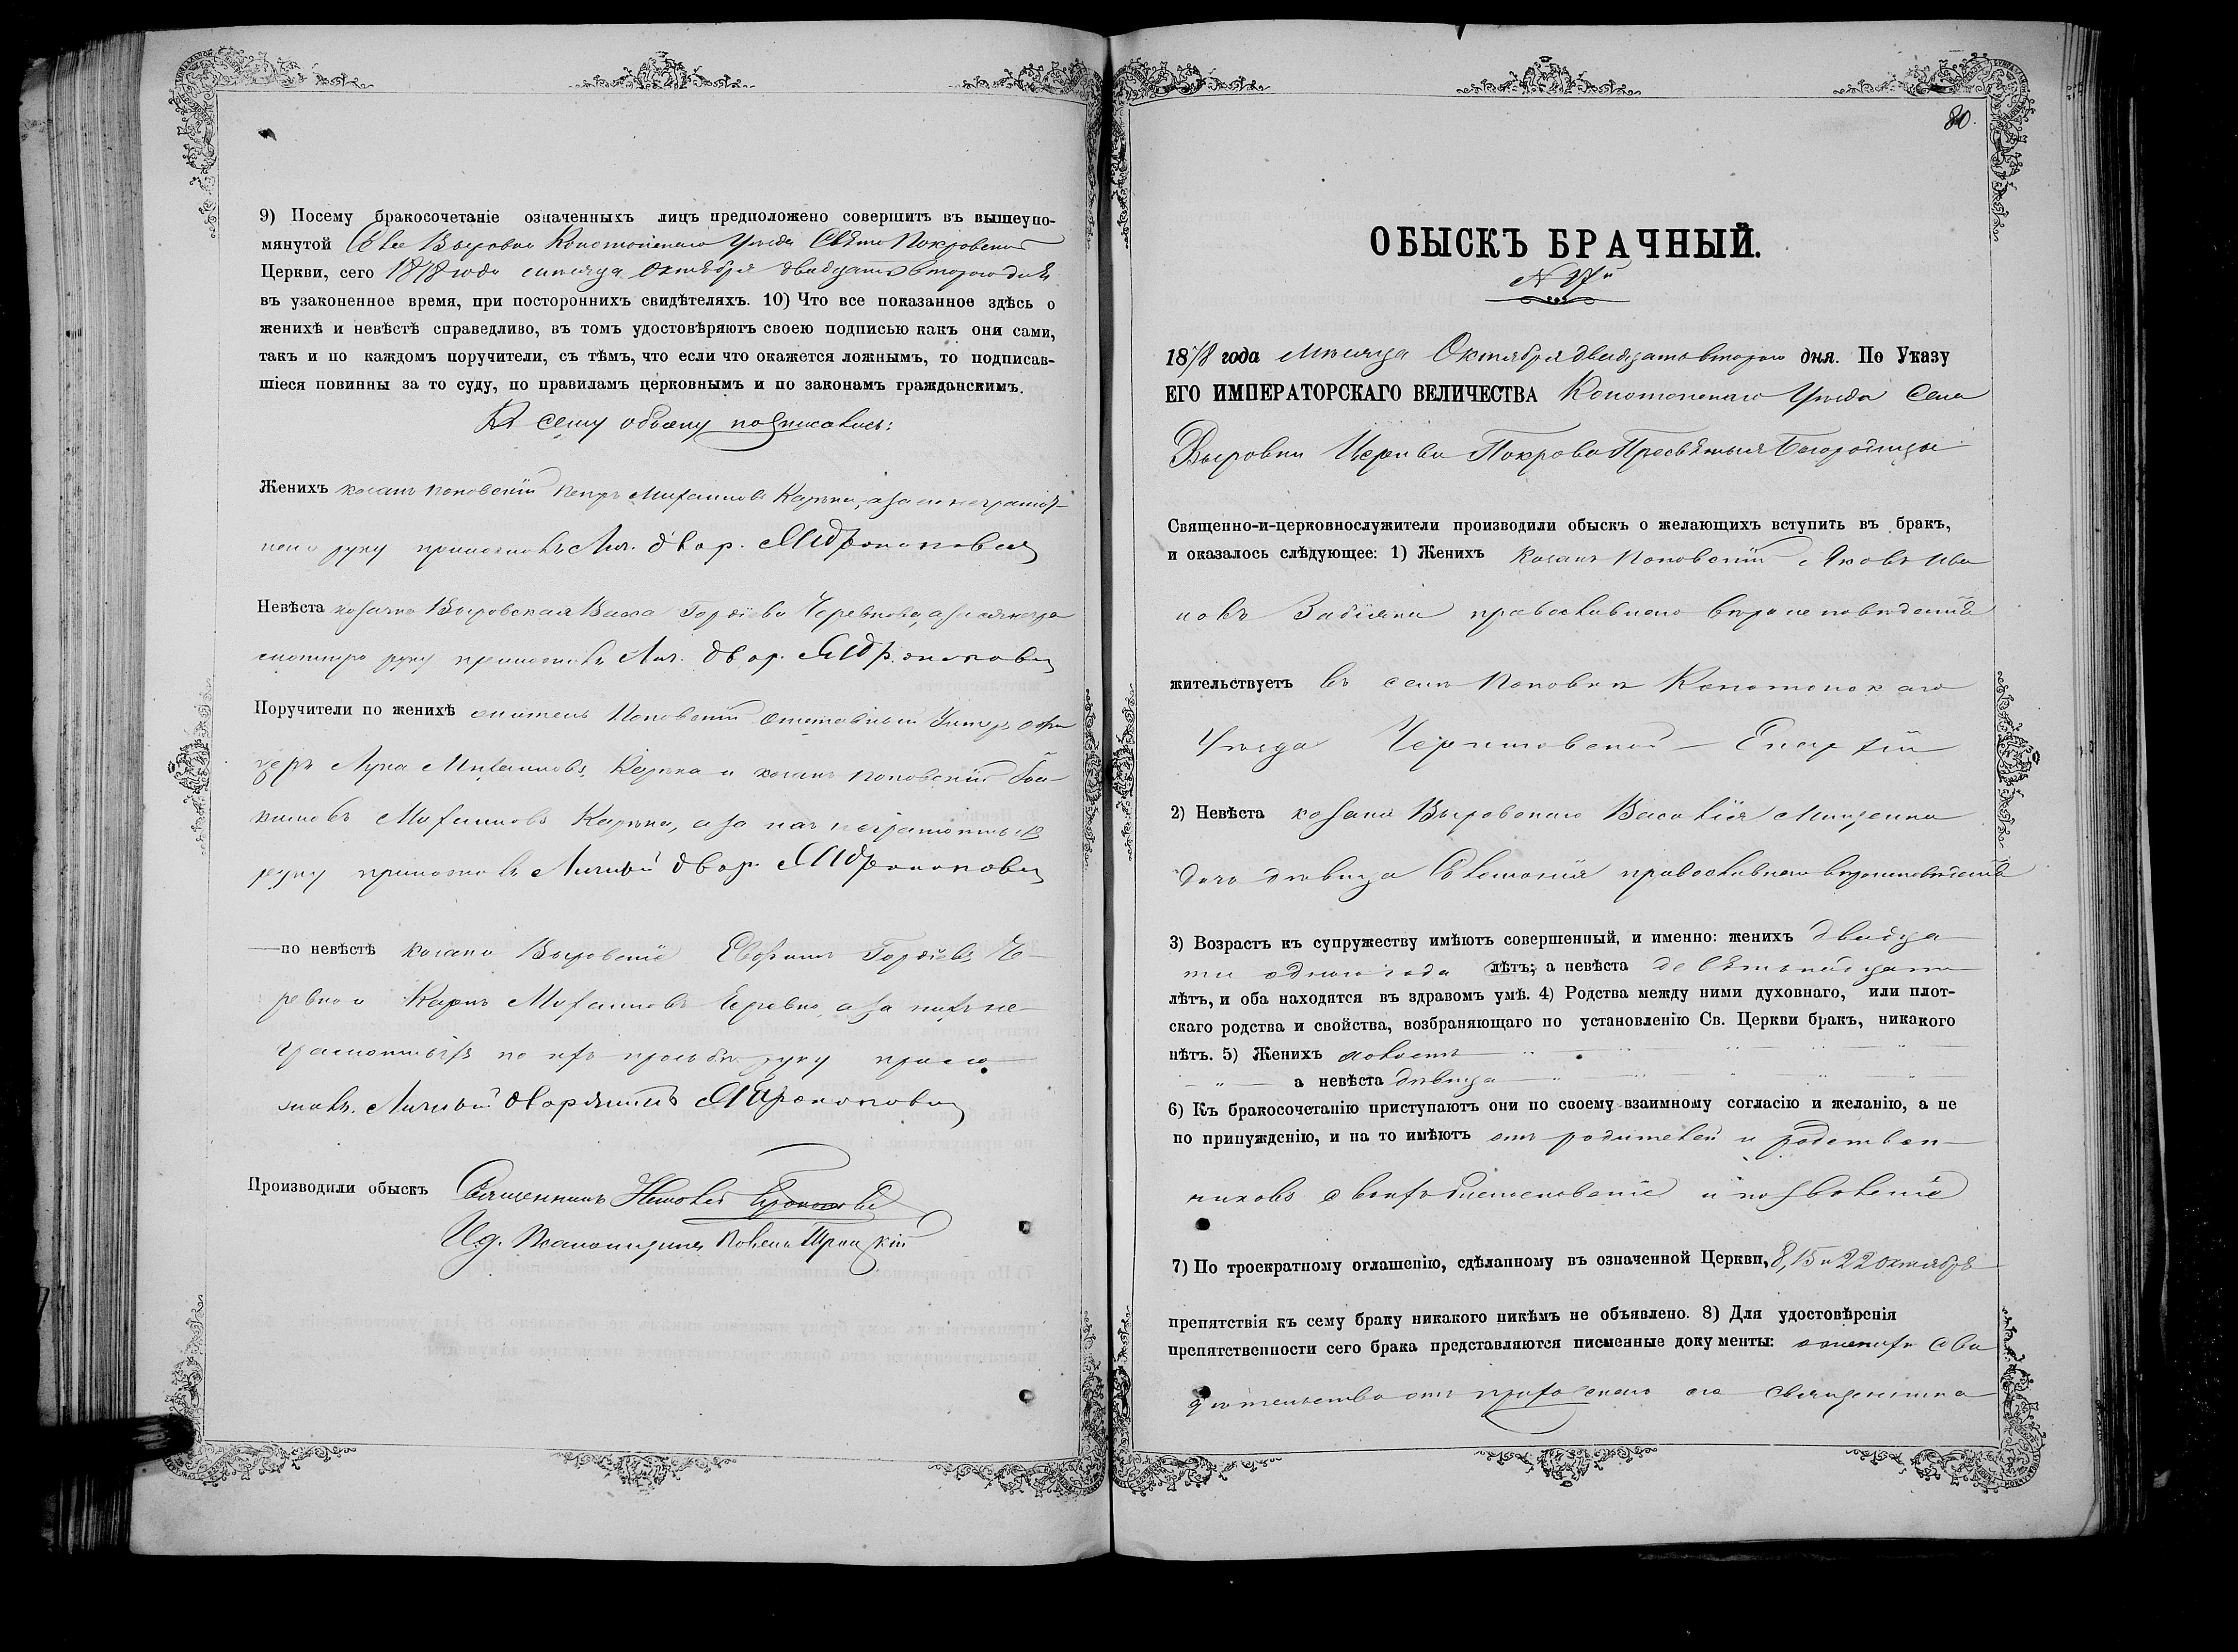 9) Посему бракосочетаніе означенныхъ лицъ предположено совершить въ вышеупо-
мянутой Села Выровки Конотопскаго Уѣзда Свято Покровской
Церкви, сего 1878 года мѣсяца Октября двадцать втораго дня
въ узаконенное время, при постороннихъ свидѣтеляхъ. 10) Что все показанное здѣсь о
женихѣ и невѣстѣ справедливо, въ томъ удостовѣряютъ своею подписью какъ они сами,
такъ и по каждомъ поручители, съ тѣмъ, что если что окажется ложнымъ, то подписав-
шіеся повинны за то суду, по правиламъ церковнымъ и по законамъ гражданскимъ.
К сему обыску подписались:
Женихъ козакъ Поповскій Петръ Михаиловъ Карпа, а за неграмот-
наго руку приложилъ Лич. двор. Прокоповичъ
Невѣста козачка Выровская Васса Гордіева Черевкова, а за нея негра
мотную руку приложилъ Лич. двор.
Поручители по женихѣ житель Поповскій отставный Унтеръ офи
церъ Лука Михаиловъ и козакъ Поповскій
Михаиловъ а за нихъ неграмотныхъ
руку приложилъ Личный двор. Прокоповичъ
—по невѣстѣ козаки Выровскіе Гордіевъ Че-
ревко и Карпъ Михаиловъ Черевко, а за нихъ не-
грамотныхъ по ихъ прозьбѣ руку прило
жилъ Личный дворянинъ Прокоповичъ
Производили обыскъ Священникъ
Псаломщика Троицкій
80.
ОБЫСКЪ БРАЧНЫЙ.
1878 года мѣсяца Октября двадцать втораго дня. По Указу
ЕГО ИМПЕРАТОРСКАГО ВЕЛИЧЕСТВА Конотопскаго Уѣзда Села
Выровки Церкви Покрова Пресвятыя Богородицы
Священно-и-церковнослужители производили обыскъ о желающихъ вступить въ бракъ,
и оказалось слѣдующее: 1) Женихъ козакъ Поповскій Яковъ Ива
новъ Забіяка православнаго вѣроисповѣданія
жительствуетъ въ селѣ Поповкѣ Конотопскаго
Уѣзда Черниговской Епархіи
2) Невѣста козака Выровскаго Василія Мищенка
дочь дѣвица православнаго вѣроисповѣданія
3) Возрастъ къ супружеству имѣютъ совершенный, и именно: женихъ двадца
ти одного года лѣтъ; а невѣста девятнадцати
лѣтъ, и оба находятся въ здравомъ умѣ. 4) Родства между ними духовнаго, или плот-
скаго родства и свойства, возбраняющаго по установленію Св. Церкви бракъ, никакого
нѣтъ. 5) Женихъ холостъ
а невѣста дѣвица
6) Къ бракосочетанію приступаютъ они по своему взаимному согласію и желанію, а не
по принужденію, и на то имѣютъ отъ родителей и родствен-
никовъ своихъ благословеніе и позволеніе
7) По троекратному оглашенію, сдѣланному въ означенной Церкви, 8, 15 и 22 октября
препятствія къ сему браку никакого никѣмъ не объявлено. 8) Для удостовѣренія
препятственности сего брака представляются писменные документы: о женихѣ сви
дѣтельство отъ приходскаго его священника